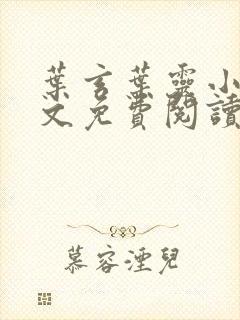 葉言葉靈小
文免費閱讀
慕容湮兒